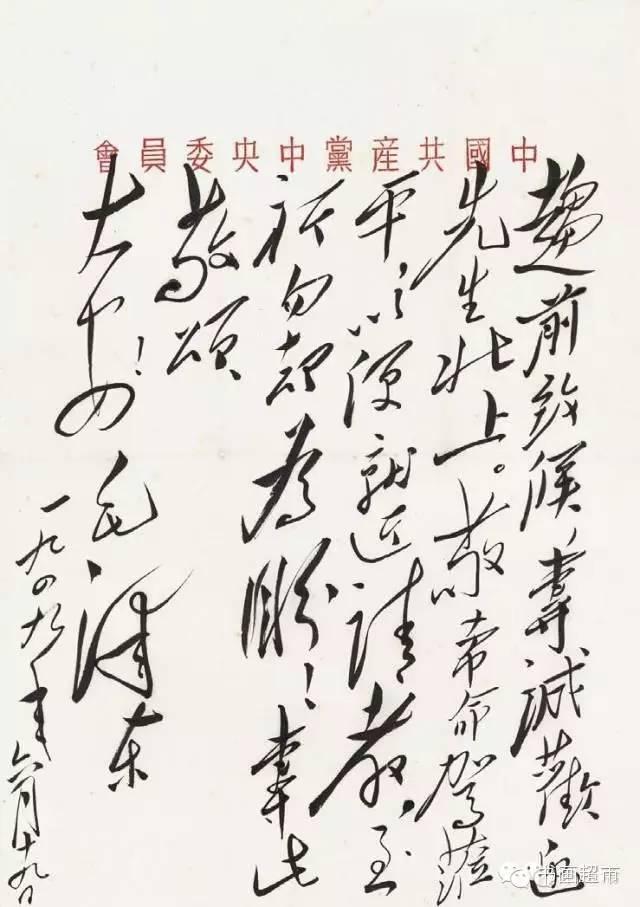 中國共産黨中央委員會
趨前致候，專誠歡迎
先生北上。敬希命駕蒞
平，以便就近請教，至
祈勿却為盼！專此
敬頌
大安！
毛澤東
一九四九年六月十九日
书画超市